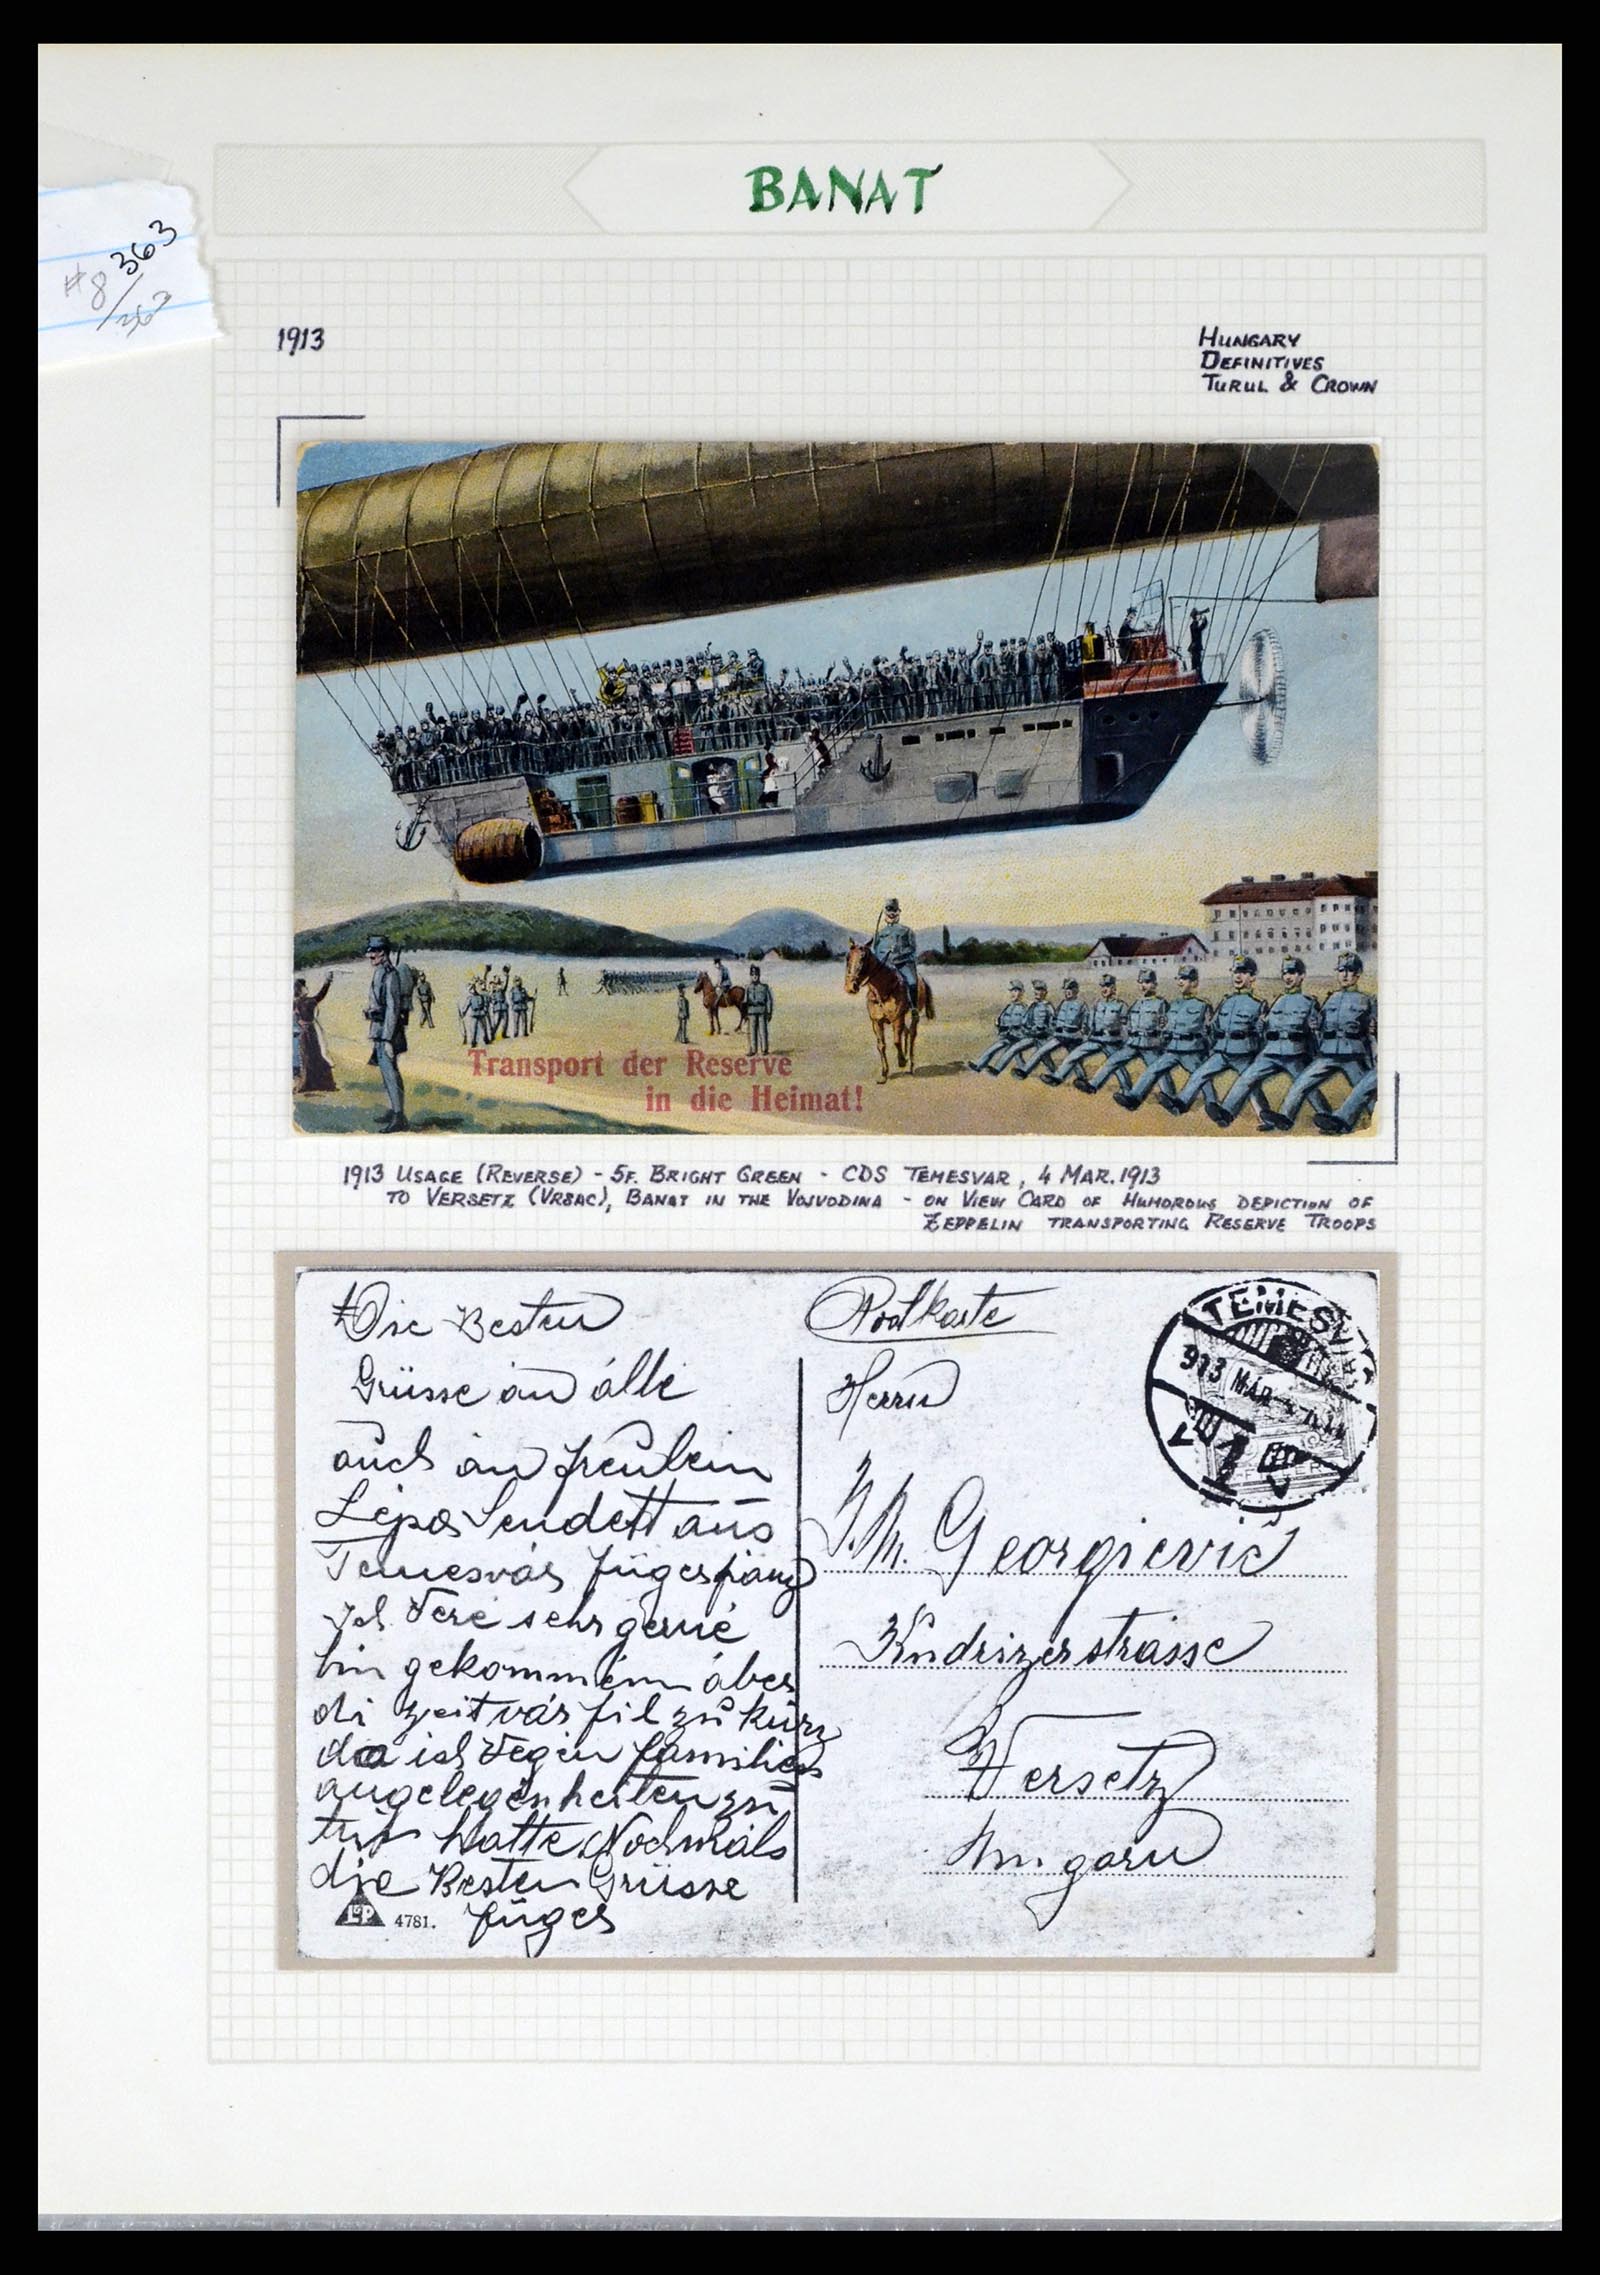 BANAT
#8 363
/363
1913
HUNGARY
DEFINITIVES
TURUL & CROWN
Transport der Reserve
in die Heimat!
1913 USAGE (REVERSE) - 5F. BRIGHT GREEN - CDS TEMESVAR, 4 MAR. 1913
TO VERSETZ (VRSAC), BANAT IN THE VOJVODINA - ON VIEW CARD OF HUMOROUS DEPICTION OF
ZEPPELIN TRANSPORTING RESERVE TROOPS
Die Besten
Grüsse an alle
auch an freulein
Lepa Sendett aus
Temesvár
ich Vere sehr gerne
hin gekommen aber
di zeit vár fil zu kurz
da ich Vegen familien
angelegenheiten zu
tun hatte Nochmals
die Besten Grüsse
L&P 4781.
Postkarte
Herrn
TEMESVÁR
913 MÁR
M. Georgievič
Kudrizerstrasse
Versetz
Ungarn